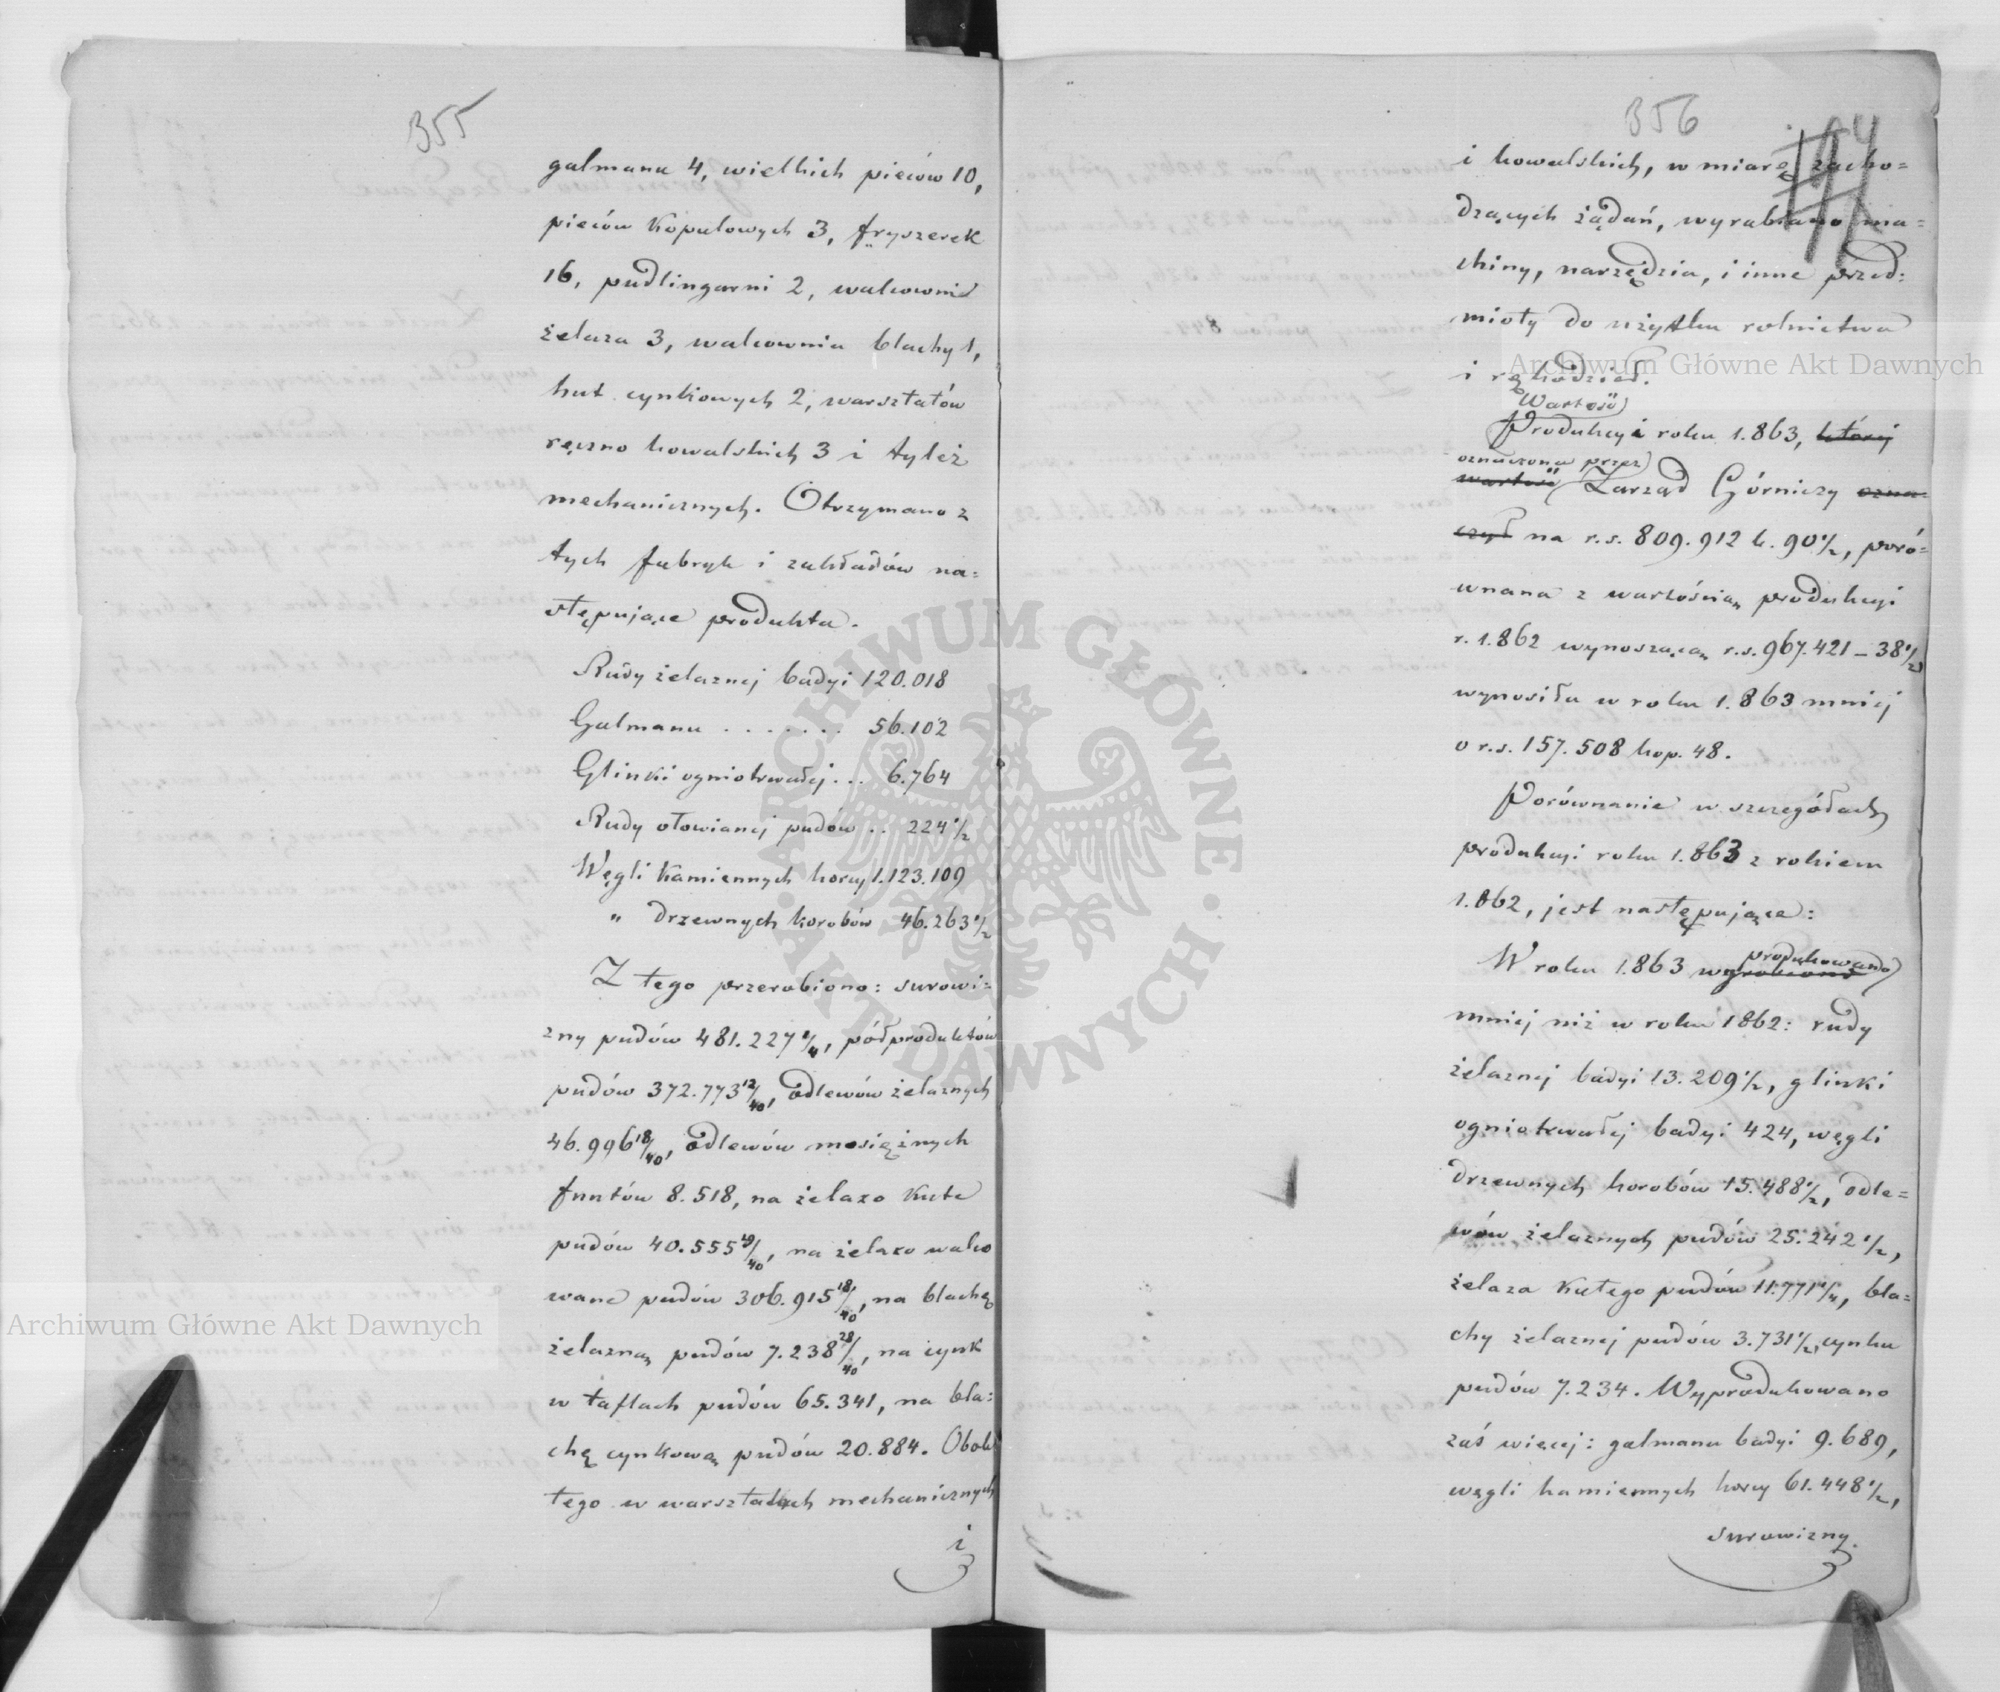 355
galmanu 4, wielkich pieców 10,
pieców Kopulowych 3, fryszerek
16, pudlingarni 2, walcownie
żelaza 3, walcownia blachy 1,
hut cynkowych 2, warsztatów
ręczno kowalskich 3 i tyleż
mechanicznych. Otrzymano z
tych fabryk i zakładów na=
stępujące produkta.
Rudy żelaznej badyi 120.018
Galmanu . . . . . . . 56.102
Glinki ogniotrwałej . . . 6.764
Rudy ołowianej pudów . . 224 1/2
Węgli Kamiennych korcy 1.123.109
" drzewnych korobów 46.263 1/2
Z tego przerobiono: surowi=
zny pudów 481.227 1/4, półproduktów
pudów 372.773 12/40, odlewów żelaznych
46.996 18/40, odlewów mosiężnych
funtów 8.518, na żelazo Kute
pudów 40.555 19/40, na żelazo walco
wane pudów 306.915 18/40, na blachę
żelazną pudów 7.238 28/40, na cynk
w taflach pudów 65.341, na bla=
chę cynkową pudów 20.884. Obok
tego w warsztatach mechanicznych
i
356
i kowalskich, w miarę zacho=
dzących żądań, wyrabiano ma=
chiny, narzędzia, i inne przed=
mioty do użytku rolnictwa
i rękodzieł.
Wartość
Produkcyi roku 1.863, której
oznaczona przez
wartość Zarząd Górniczy ozna=
czył na r.s. 809.912 k. 90 1/2, poró=
wnana z wartością produkcyi
r. 1.862 wynoszącą r.s. 967.421 _ 38 1/2
wynosiła w roku 1.863 mniej
o r.s. 157.508 kop. 48.
Porównanie w szczegółach
produkcyi roku 1.863 z rokiem
1.862, jest następujące:
produkowano
W roku 1.863 wyrobiono
mniej niż w roku 1862: rudy
żelaznej badyi 13.209 1/2, glinki
ogniotrwałej badyi 424, węgli
drzewnych korobów 15.488 1/2, odle=
wów żelaznych pudów 25.242 1/2,
żelaza Kutego pudów 11.771 1/4, bla=
chy żelaznej pudów 3.731 1/2, cynku
pudów 7.234. Wyprodukowano
zaś więcej: galmanu badyi 9.689,
węgli kamiennych korcy 61.448 1/2,
surowizny.
Archiwum Główne Akt Dawnych
Archiwum Główne Akt Dawnych
ARCHIWUM GŁÓWNE · AKT DAWNYCH ·